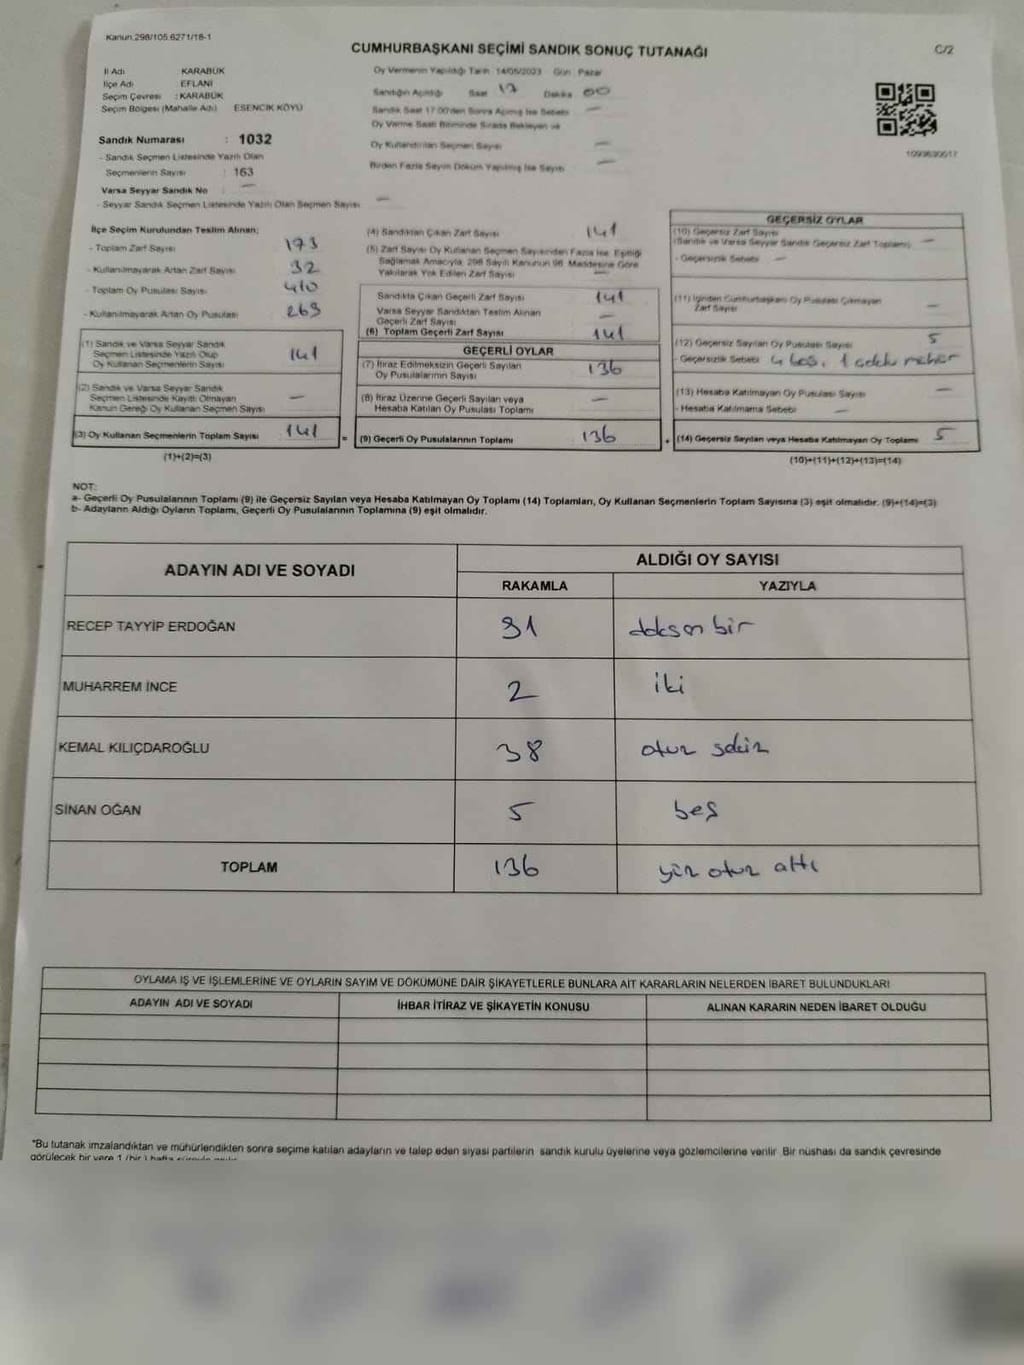 Kanun.298/105.6271/18-1
CUMHURBAŞKANI SEÇİMİ SANDIK SONUÇ TUTANAĞI
C/2
İl Adı KARABÜK
İlçe Adı EFLANİ
Seçim Çevresi : KARABÜK
Seçim Bölgesi (Mahalle Adı) ESENCİK KÖYÜ
Sandık Numarası : 1032
- Sandık Seçmen Listesinde Yazılı Olan
Seçmenlerin Sayısı : 163
Varsa Seyyar Sandık No : —
- Seyyar Sandık Seçmen Listesinde Yazılı Olan Seçmen Sayısı —
Oy Vermenin Yapıldığı Tarih : 14/05/2023 Gün : Pazar
Sandığın Açıldığı Saat 17 Dakika 00
Sandık Saat 17.00'den Sonra Açılmış İse Sebebi —
Oy Verme Saati Bitiminde Sırada Bekleyen ve
Oy Kullandırılan Seçmen Sayısı —
Birden Fazla Sayım Döküm Yapılmış İse Sayısı —
1093630017
İlçe Seçim Kurulundan Teslim Alınan;
- Toplam Zarf Sayısı 173
- Kullanılmayarak Artan Zarf Sayısı 32
- Toplam Oy Pusulası Sayısı 410
- Kullanılmayarak Artan Oy Pusulası 269
(1) Sandık ve Varsa Seyyar Sandık
Seçmen Listesinde Yazılı Olup
Oy Kullanan Seçmenlerin Sayısı 141
(2) Sandık ve Varsa Seyyar Sandık
Seçmen Listesinde Kayıtlı Olmayan
Kanun Gereği Oy Kullanan Seçmen Sayısı —
(3) Oy Kullanan Seçmenlerin Toplam Sayısı 141
(1)+(2)=(3)
(4) Sandıktan Çıkan Zarf Sayısı 141
(5) Zarf Sayısı Oy Kullanan Seçmen Sayısından Fazla İse, Eşitliği
Sağlamak Amacıyla, 298 Sayılı Kanunun 98. Maddesine Göre
Yakılarak Yok Edilen Zarf Sayısı —
Sandıkta Çıkan Geçerli Zarf Sayısı 141
Varsa Seyyar Sandıktan Teslim Alınan
Geçerli Zarf Sayısı —
(6) Toplam Geçerli Zarf Sayısı 141
GEÇERLİ OYLAR
(7) İtiraz Edilmeksizin Geçerli Sayılan
Oy Pusulalarının Sayısı 136
(8) İtiraz Üzerine Geçerli Sayılan veya
Hesaba Katılan Oy Pusulası Toplamı —
= (9) Geçerli Oy Pusulalarının Toplamı 136
GEÇERSİZ OYLAR
(10) Geçersiz Zarf Sayısı
(Sandık ve Varsa Seyyar Sandık Geçersiz Zarf Toplamı) —
- Geçersizlik Sebebi —
(11) İçinden Cumhurbaşkanı Oy Pusulası Çıkmayan
Zarf Sayısı —
(12) Geçersiz Sayılan Oy Pusulası Sayısı 5
- Geçersizlik Sebebi 4 boş, 1 adet mühür
(13) Hesaba Katılmayan Oy Pusulası Sayısı —
- Hesaba Katılmama Sebebi —
+ (14) Geçersiz Sayılan veya Hesaba Katılmayan Oy Toplamı 5
(10)+(11)+(12)+(13)=(14)
NOT:
a- Geçerli Oy Pusulalarının Toplamı (9) ile Geçersiz Sayılan veya Hesaba Katılmayan Oy Toplamı (14) Toplamları, Oy Kullanan Seçmenlerin Toplam Sayısına (3) eşit olmalıdır. (9)+(14)=(3)
b- Adayların Aldığı Oyların Toplamı, Geçerli Oy Pusulalarının Toplamına (9) eşit olmalıdır.
ADAYIN ADI VE SOYADI
ALDIĞI OY SAYISI
RAKAMLA YAZIYLA
RECEP TAYYİP ERDOĞAN 91 doksan bir
MUHARREM İNCE 2 iki
KEMAL KILIÇDAROĞLU 38 otuz sekiz
SİNAN OĞAN 5 beş
TOPLAM 136 yüz otuz altı
OYLAMA İŞ VE İŞLEMLERİNE VE OYLARIN SAYIM VE DÖKÜMÜNE DAİR ŞİKAYETLERLE BUNLARA AİT KARARLARIN NELERDEN İBARET BULUNDUKLARI
ADAYIN ADI VE SOYADI İHBAR İTİRAZ VE ŞİKAYETİN KONUSU ALINAN KARARIN NEDEN İBARET OLDUĞU
*Bu tutanak imzalandıktan ve mühürlendikten sonra seçime katılan adayların ve talep eden siyasi partilerin sandık kurulu üyelerine veya gözlemcilerine verilir. Bir nüshası da sandık çevresinde
görülecek bir yere 1 (bir) hafta